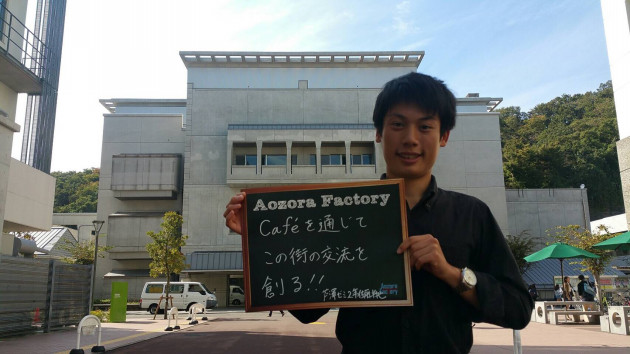 Aozora Factory
Caféを通じて
この街の交流を
創る!!
Aozora
Factory